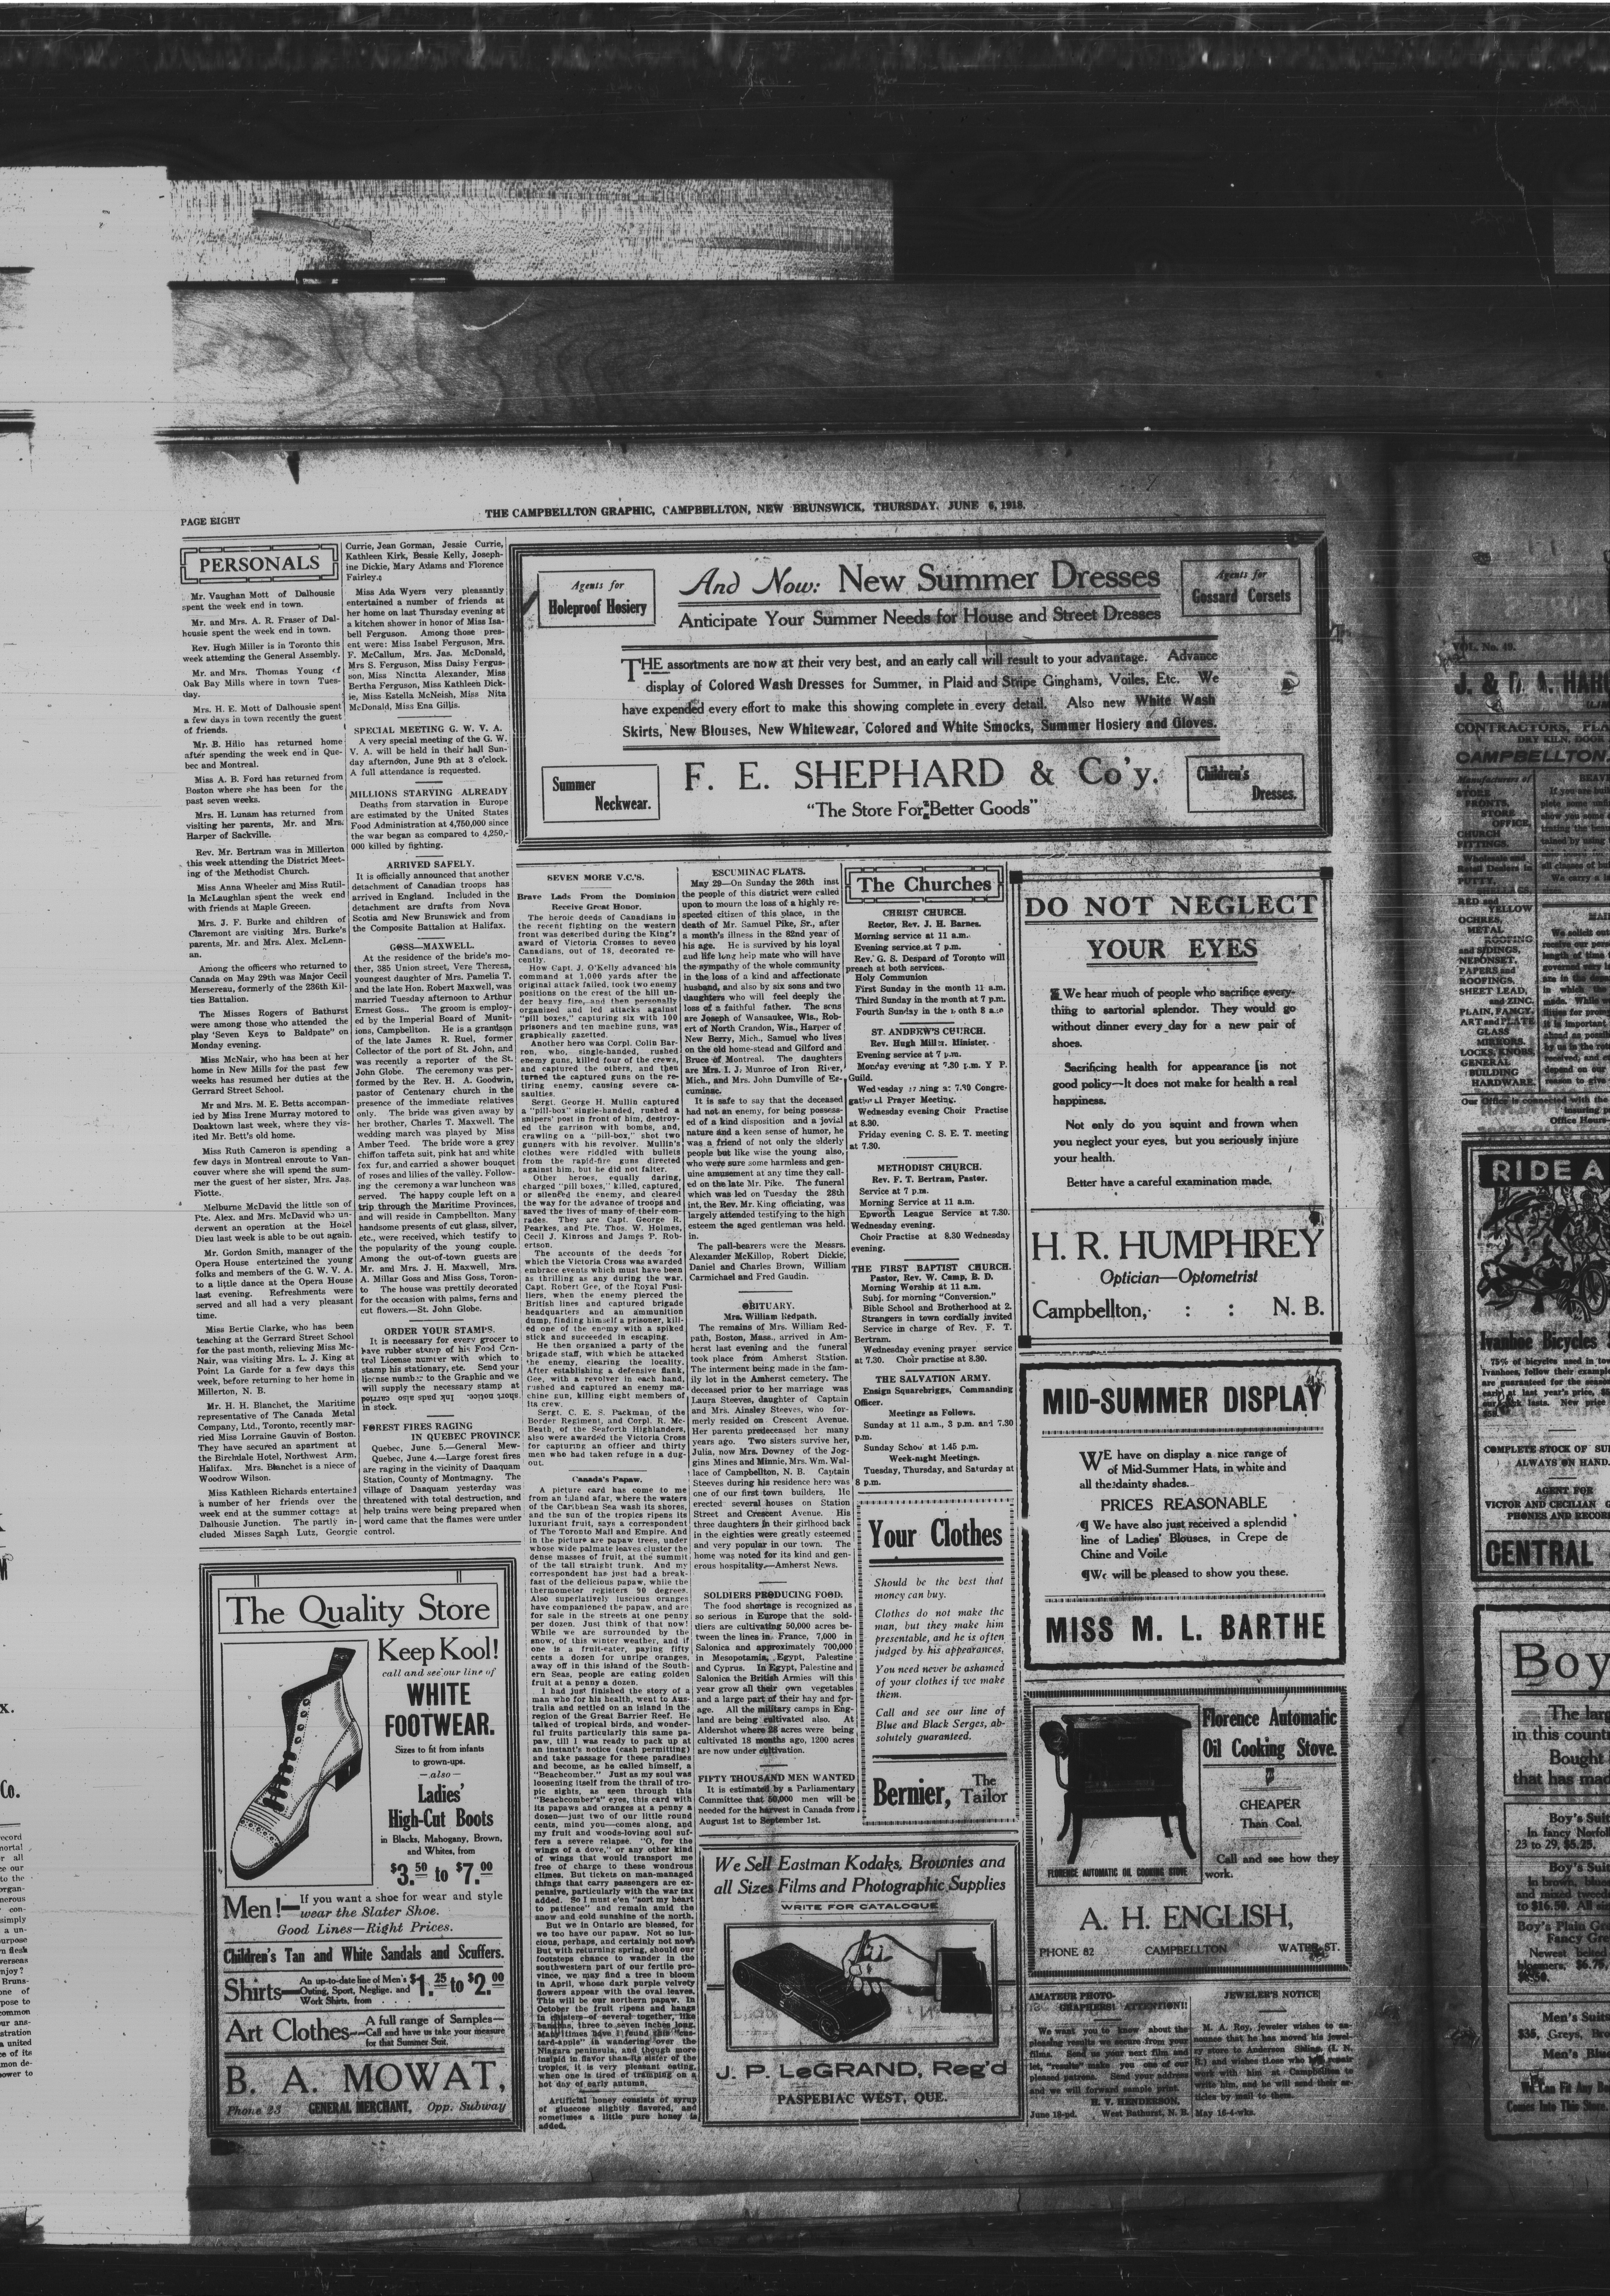 PAGE EIGHT
THE CAMPBELLTON GRAPHIC, CAMPBELLTON, NEW BRUNSWICK, THURSDAY, JUNE 6, 1918.
PERSONALS
Mr. Vaughan Mott of Dalhousie
spent the week end in town.
Mr. and Mrs. A. R. Fraser of Dal-
housie spent the week end in town.
Rev. Hugh Miller is in Toronto this
week attending the General Assembly.
Mr. and Mrs. Thomas Young of
Oak Bay Mills where in town Tues-
day.
Mrs. H. E. Mott of Dalhousie spent
a few days in town recently the guest
of friends.
Mr. B. Hilio has returned home
after spending the week end in Que-
bec and Montreal.
Miss A. B. Ford has returned from
Boston where she has been for the
past seven weeks.
Mrs. H. Lunam has returned from
visiting her parents, Mr. and Mrs.
Harper of Sackville.
Rev. Mr. Bertram was in Millerton
this week attending the District Meet-
ing of the Methodist Church.
Miss Anna Wheeler and Miss Rutil-
la McLaughlan spent the week end
with friends at Maple Greeen.
Mrs. J. F. Burke and children of
Claremont are visiting Mrs. Burke's
parents, Mr. and Mrs. Alex. McLenn-
an.
Among the officers who returned to
Canada on May 29th was Major Cecil
Mersereau, formerly of the 236th Kil-
ties Battalion.
The Misses Rogers of Bathurst
were among those who attended the
play "Seven Keys to Baldpate" on
Monday evening.
Miss McNair, who has been at her
home in New Mills for the past few
weeks has resumed her duties at the
Gerrard Street School.
Mr and Mrs. M. E. Betts accompan-
ied by Miss Irene Murray motored to
Doaktown last week, where they vis-
ited Mr. Bett's old home.
Miss Ruth Cameron is spending a
few days in Montreal enroute to Van-
couver where she will spend the sum-
mer the guest of her sister, Mrs. Jas.
Flotte.
Melburne McDavid the little son of
Pte. Alex. and Mrs. McDavid who un-
derwent an operation at the Hotel
Dieu last week is able to be out again.
Mr. Gordon Smith, manager of the
Opera House entertained the young
folks and members of the G. W. V. A.
to a little dance at the Opera House
last evening. Refreshments were
served and all had a very pleasant
time.
Miss Bertie Clarke, who has been
teaching at the Gerrard Street School
for the past month, relieving Miss Mc-
Nair, was visiting Mrs. L. J. King at
Point La Garde for a few days this
week, before returning to her home in
Millerton, N. B.
Mr. H. H. Blanchet, the Maritime
representative of The Canada Metal
Company, Ltd., Toronto, recently mar-
ried Miss Lorraine Gauvin of Boston.
They have secured an apartment at
the Birchdale Hotel, Northwest Arm,
Halifax. Mrs. Blanchet is a niece of
Woodrow Wilson.
Miss Kathleen Richards entertained
a number of her friends over the
week end at the summer cottage at
Dalhousie Junction. The party in-
cluded Misses Sarah Lutz, Georgie
Currie, Jean Gorman, Jessie Currie,
Kathleen Kirk, Bessie Kelly, Joseph-
ine Dickie, Mary Adams and Florence
Fairley.
Miss Ada Wyers very pleasantly
entertained a number of friends at
her home on last Thursday evening at
a kitchen shower in honor of Miss Isa-
bell Ferguson. Among those pres-
ent were: Miss Isabel Ferguson, Mrs.
F. McCallum, Mrs. Jas. McDonald,
Mrs S. Ferguson, Miss Daisy Fergus-
son, Miss Ninetta Alexander, Miss
Bertha Ferguson, Miss Kathleen Dick-
ie, Miss Estella McNeish, Miss Nita
McDonald, Miss Ena Gillis.
SPECIAL MEETING G. W. V. A.
A very special meeting of the G. W.
V. A. will be held in their hall Sun-
day afternoon, June 9th at 3 o'clock.
A full attendance is requested.
MILLIONS STARVING ALREADY
Deaths from starvation in Europe
are estimated by the United States
Food Administration at 4,750,000 since
the war began as compared to 4,250,-
000 killed by fighting.
ARRIVED SAFELY.
It is officially announced that another
detachment of Canadian troops has
arrived in England. Included in the
detachment are drafts from Nova
Scotia and New Brunswick and from
the Composite Battalion at Halifax.
GOSS—MAXWELL.
At the residence of the bride's mo-
ther, 385 Union street, Vere Theresa,
youngest daughter of Mrs. Pamelia T.
and the late Hon. Robert Maxwell, was
married Tuesday afternoon to Arthur
Ernest Goss.. The groom is employ-
ed by the Imperial Board of Munit-
ions, Campbellton. He is a grandson
of the late James R. Ruel, former
Collector of the port of St. John, and
was recently a reporter of the St.
John Globe. The ceremony was per-
formed by the Rev. H. A. Goodwin,
pastor of Centenary church in the
presence of the immediate relatives
only. The bride was given away by
her brother, Charles T. Maxwell. The
wedding march was played by Miss
Amber Teed. The bride wore a grey
chiffon taffeta suit, pink hat and white
fox fur, and carried a shower bouquet
of roses and lilies of the valley. Follow-
ing the ceremony a war luncheon was
served. The happy couple left on a
trip through the Maritime Provinces,
and will reside in Campbellton. Many
handsome presents of cut glass, silver,
etc., were received, which testify to
the popularity of the young couple.
Among the out-of-town guests are
Mr. and Mrs. J. H. Maxwell, Mrs.
A. Millar Goss and Miss Goss, Toron-
to The house was prettily decorated
for the occasion with palms, ferns and
cut flowers.—St. John Globe.
ORDER YOUR STAMPS.
It is necessary for every grocer to
have rubber stamp of his Food Con-
trol License number with which to
stamp his stationary, etc. Send your
license number to the Graphic and we
will supply the necessary stamp at
short notice. Ink pads also carried
in stock.
FOREST FIRES RAGING
IN QUEBEC PROVINCE
Quebec, June 5.—General Mew-
Quebec, June 4.—Large forest fires
are raging in the vicinity of Daaquam
Station, County of Montmagny. The
village of Daaquam yesterday was
threatened with total destruction, and
help trains were being prepared when
word came that the flames were under
control.
The Quality Store
Keep Kool!
call and see our line of
WHITE
FOOTWEAR.
Sizes to fit from infants
to grown-ups.
—also—
Ladies'
High-Cut Boots
in Blacks, Mahogany, Brown,
and Whites, from
$3.50 to $7.00
Men!—If you want a shoe for wear and style
wear the Slater Shoe.
Good Lines—Right Prices.
Children's Tan and White Sandals and Scuffers.
Shirts—An up-to-date line of Men's
Outing, Sport, Neglige, and
Work Shirts, from . . . $1.25 to $2.00
Art Clothes—A full range of Samples—
Call and have us take your measure
for that Summer Suit.
B. A. MOWAT,
Phone 23 GENERAL MERCHANT, Opp. Subway
Agents for
Holeproof Hosiery
And Now: New Summer Dresses
Anticipate Your Summer Needs for House and Street Dresses
Agents for
Gossard Corsets
THE assortments are now at their very best, and an early call will result to your advantage. Advance
display of Colored Wash Dresses for Summer, in Plaid and Stripe Ginghams, Voiles, Etc. We
have expended every effort to make this showing complete in every detail. Also new White Wash
Skirts, New Blouses, New Whitewear, Colored and White Smocks, Summer Hosiery and Gloves.
Summer
Neckwear.
F. E. SHEPHARD & Co'y.
"The Store For Better Goods"
Children's
Dresses.
SEVEN MORE V.C.'S.
Brave Lads From the Dominion
Receive Great Honor.
The heroic deeds of Canadians in
the recent fighting on the western
front was described in the King's
award of Victoria Crosses to seven
Canadians, out of 18, decorated re-
cently.
How Capt. J. O'Kelly advanced his
command at 1,000 yards after the
original attack failed, took two enemy
positions on the crest of the hill un-
der heavy fire, and then personally
organized and led attacks against
"pill boxes," capturing six with 100
prisoners and ten machine guns, was
graphically gazetted.
Another hero was Corpl. Colin Bar-
ron, who, single-handed, rushed
enemy guns, killed four of the crews,
and captured the others, and then
turned the captured guns on the re-
tiring enemy, causing severe ca-
sualties.
Sergt. George H. Mullin captured
a "pill-box" single-handed, rushed a
snipers' post in front of him, destroy-
ed the garrison with bombs, and,
crawling on a "pill-box," shot two
gunners with his revolver. Mullin's
clothes were riddled with bullets
from the rapid-fire guns directed
against him, but he did not falter.
Other heroes, equally daring,
charged "pill boxes," killed, captured,
or silenced the enemy, and cleared
the way for the advance of troops and
saved the lives of many of their com-
rades. They are Capt. George R.
Pearkes, and Pte. Thos. W. Holmes,
Cecil J. Kinross and James P. Rob-
ertson.
The accounts of the deeds for
which the Victoria Cross was awarded
embrace events which must have been
as thrilling as any during the war.
Capt. Robert Gee, of the Royal Fusi-
liers, when the enemy pierced the
British lines and captured brigade
headquarters and an ammunition
dump, finding himself a prisoner, kill-
ed one of the enemy with a spiked
stick and succeeded in escaping.
He then organized a party of the
brigade staff, with which he attacked
the enemy, clearing the locality.
After establishing a defensive flank,
Gee, with a revolver in each hand,
rushed and captured an enemy ma-
chine gun, killing eight members of
its crew.
Sergt. C. E. S. Packman, of the
Border Regiment, and Corpl. R. Mc-
Beath, of the Seaforth Highlanders,
also were awarded the Victoria Cross
for capturing an officer and thirty
men who had taken refuge in a dug-
out.
Canada's Papaw.
A picture card has come to me
from an island afar, where the waters
of the Caribbean Sea wash its shores,
and the sun of the tropics ripens its
luxuriant fruit, says a correspondent
of The Toronto Mail and Empire. And
in the picture are papaw trees, under
whose wide palmate leaves cluster the
dense masses of fruit, at the summit
of the tall straight trunk. And my
correspondent has just had a break-
fast of the delicious papaw, while the
thermometer registers 90 degrees.
Also superlatively luscious oranges
have companioned the papaw, and are
for sale in the streets at one penny
per dozen. Just think of that now!
While we are surrounded by the
snow, of this winter weather, and if
one is a fruit-eater, paying fifty
cents a dozen for unripe oranges,
away off in this island of the South-
ern Seas, people are eating golden
fruit at a penny a dozen.
I had just finished the story of a
man who for his health, went to Aus-
tralia and settled on an island in the
region of the Great Barrier Reef. He
talked of tropical birds, and wonder-
ful fruits particularly this same pa-
paw, till I was ready to pack up at
an instant's notice (cash permitting)
and take passage for these paradises
and become, as he called himself, a
"Beachcomber." Just as my soul was
loosening itself from the thrall of tro-
pic sights, as seen through this
"Beachcomber's" eyes, this card with
its papaws and oranges at a penny a
dozen—just two of our little round
cents, mind you—comes along, and
my fruit and woods-loving soul suf-
fers a severe relapse. "O, for the
wings of a dove," or any other kind
of wings that would transport me
free of charge to these wondrous
climes. But tickets on man-managed
things that carry passengers are ex-
pensive, particularly with the war tax
added. So I must e'en "sort my heart
to patience" and remain amid the
snow and cold sunshine of the north.
But we in Ontario are blessed, for
we too have our papaw. Not so lus-
cious, perhaps, and certainly not now.
But with returning spring, should our
footsteps chance to wander in the
southwestern part of our fertile pro-
vince, we may find a tree in bloom
in April, whose dark purple velvety
flowers appear with the oval leaves.
This will be our northern papaw. In
October the fruit ripens and hangs
in clusters of several together, like
bananas, three to seven inches long.
Many times have I found this "cus-
tard-apple" in wandering over the
Niagara peninsula, and though more
insipid in flavor than its sister of the
tropics, it is very pleasant eating,
when one is tired of tramping on a
hot day of early autumn.
Artificial honey consists of syrup
of gluecose slightly flavored, and
sometimes a little pure honey is
added.
ESCUMINAC FLATS.
May 29—On Sunday the 26th inst
the people of this district were called
upon to mourn the loss of a highly re-
spected citizen of this place, in the
death of Mr. Samuel Pike, Sr., after
a month's illness in the 82nd year of
his age. He is survived by his loyal
and life long help mate who will have
the sympathy of the whole community
in the loss of a kind and affectionate
husband, and also by six sons and two
daughters who will feel deeply the
loss of a faithful father. The sons
are Joseph of Wansaukee, Wis., Rob-
ert of North Crandon, Wis., Harper of
New Berry, Mich., Samuel who lives
on the old home-stead and Gilford and
Bruce of Montreal. The daughters
are Mrs. I. J. Munroe of Iron River,
Mich., and Mrs. John Dumville of Es-
cuminac.
It is safe to say that the deceased
had not an enemy, for being possess-
ed of a kind disposition and a jovial
nature and a keen sense of humor, he
was a friend of not only the elderly
people but like wise the young also,
who were sure some harmless and gen-
uine amusement at any time they call-
ed on the late Mr. Pike. The funeral
which was led on Tuesday the 28th
int, the Rev. Mr. King officiating, was
largely attended testifying to the high
esteem the aged gentleman was held.
in.
The pall-bearers were the Messrs.
Alexander McKillop, Robert Dickie,
Daniel and Charles Brown, William
Carmichael and Fred Gaudin.
OBITUARY.
Mrs. William Redpath.
The remains of Mrs. William Red-
path, Boston, Mass., arrived in Am-
herst last evening and the funeral
took place from Amherst Station.
The interment being made in the fam-
ily lot in the Amherst cemetery. The
deceased prior to her marriage was
Laura Steeves, daughter of Captain
and Mrs. Ainsley Steeves, who for-
merly resided on Crescent Avenue.
Her parents predeceased her many
years ago. Two sisters survive her,
Julia, now Mrs. Downey of the Jog-
gins Mines and Minnie, Mrs. Wm. Wal-
lace of Campbellton, N. B. Captain
Steeves during his residence here was
one of our first town builders. He
erected several houses on Station
Street and Crescent Avenue. His
three daughters in their girlhood back
in the eighties were greatly esteemed
and very popular in our town. The
home was noted for its kind and gen-
erous hospitality.—Amherst News.
SOLDIERS PRODUCING FOOD.
The food shortage is recognized as
so serious in Europe that the sold-
iers are cultivating 50,000 acres be-
tween the lines in France, 7,000 in
Salonica and approximately 700,000
in Mesopotamia, Egypt, Palestine
and Cyprus. In Egypt, Palestine and
Salonica the British Armies will this
year grow all their own vegetables
and a large part of their hay and for-
age. All the military camps in Eng-
land are being cultivated also. At
Aldershot where 28 acres were being
cultivated 18 months ago, 1200 acres
are now under cultivation.
FIFTY THOUSAND MEN WANTED
It is estimated by a Parliamentary
Committee that 50,000 men will be
needed for the harvest in Canada from
August 1st to September 1st.
The Churches
CHRIST CHURCH.
Rector, Rev. J. H. Barnes.
Morning service at 11 a.m.
Evening service at 7 p.m.
Rev. G. S. Despard of Toronto will
preach at both services.
Holy Communion
First Sunday in the month 11 a.m.
Third Sunday in the month at 7 p.m.
Fourth Sunday in the month 8 a.m
ST. ANDREW'S CHURCH.
Rev. Hugh Miller. Minister.
Evening service at 7 p.m.
Monday evening at 7.30 p.m. Y P.
Guild.
Wednesday evening at 7.30 Congre-
gational Prayer Meeting.
Wednesday evening Choir Practise
at 8.30.
Friday evening C. S. E. T. meeting
at 7.30.
METHODIST CHURCH.
Rev. F. T. Bertram, Paster.
Service at 7 p.m.
Morning Service at 11 a.m.
Epworth League Service at 7.30.
Wednesday evening.
Choir Practise at 8.30 Wednesday
evening.
THE FIRST BAPTIST CHURCH.
Pastor, Rev. W. Camp, B. D.
Morning Worship at 11 a.m.
Subj. for morning "Conversion."
Bible School and Brotherhood at 2.
Strangers in town cordially invited
Service in charge of Rev. F. T.
Bertram.
Wednesday evening prayer service
at 7.30. Choir practise at 8.30.
THE SALVATION ARMY.
Ensign Squarebriggs, Commanding
Officer.
Meetings as Follows.
Sunday at 11 a.m., 3 p.m. and 7.30
p.m.
Sunday School at 1.45 p.m.
Week-night Meetings.
Tuesday, Thursday, and Saturday at
8 p.m.
Your Clothes
Should be the best that
money can buy.
Clothes do not make the
man, but they make him
presentable, and he is often
judged by his appearances,
You need never be ashamed
of your clothes if we make
them.
Call and see our line of
Blue and Black Serges, ab-
solutely guaranteed.
Bernier, The Tailor
We Sell Eastman Kodaks, Brownies and
all Sizes Films and Photographic Supplies
WRITE FOR CATALOGUE
J. P. LeGRAND, Reg'd
PASPEBIAC WEST, QUE.
DO NOT NEGLECT
YOUR EYES
¶ We hear much of people who sacrifice every-
thing to sartorial splendor. They would go
without dinner every day for a new pair of
shoes.
Sacrificing health for appearance is not
good policy—It does not make for health a real
happiness.
Not only do you squint and frown when
you neglect your eyes, but you seriously injure
your health.
Better have a careful examination made.
H. R. HUMPHREY
Optician—Optometrist
Campbellton, : : N. B.
MID-SUMMER DISPLAY
WE have on display a nice range of
of Mid-Summer Hats, in white and
all the dainty shades.
PRICES REASONABLE
¶ We have also just received a splendid
line of Ladies' Blouses, in Crepe de
Chine and Voile
¶We will be pleased to show you these.
MISS M. L. BARTHE
Florence Automatic
Oil Cooking Stove.
CHEAPER
Than Coal.
Call and see how they
work.
FLORENCE AUTOMATIC OIL COOKING STOVE
A. H. ENGLISH,
PHONE 82 CAMPBELLTON WATER ST.
AMATEUR PHOTO-
GRAPHERS! ATTENTION!!
We want you to know about the
pleasing results we secure from your
films. Send us your next film and
let, "results" make you one of our
pleased patrons. Send your address
and we will forward sample print.
H. V. HENDERSON,
June 18-pd. West Bathurst, N. B.
JEWELER'S NOTICE
M. A. Roy, jeweler wishes to an-
nounce that he has moved his jewel-
ry store to Anderson Siding, (I. N.
R.) and wishes those who have repair
work with him at Campbellton to
write him, and he will send their ar-
ticles by mail to them.
May 16-4-wks.
VOL. No. 49.
CONTRACTORS,
CAMPBELLTON,
Manufacturers of
STORE
FRONTS,
STORE
OFFICE,
CHURCH
FITTINGS.
Wholesale and
Retail Dealers in
PUTTY,
SHELLACS,
RED and
YELLOW
OCHRES,
METAL
ROOFING
and SIDINGS,
NEPONSET,
PAPERS and
ROOFINGS,
SHEET LEAD,
and ZINC,
PLAIN, FANCY,
ART and PLATE
GLASS
MIRRORS,
LOCKS, KNOBS,
GENERAL
BUILDING
HARDWARE.
Our Office is connected with the
Office Hours
RIDE A
Ivanhoe Bicycles
75% of bicycles used in
Ivanhoes, follow their example
are guaranteed for the season
at last year's price,
COMPLETE STOCK OF
ALWAYS ON HAND.
AGENT FOR
VICTOR AND CECILIAN
PHONES AND RECORDS
CENTRAL
Boy
The larg
in this count
Bought
that has mad
Boy's Suit
In fancy Norfol
23 to 29, $5.25,
Boy's Suit
In brown, blue
and mixed tweed
to $16.50. All siz
Boy's Plain
Fancy
Newest belted
bloomers, $6.75,
Men's Suits
$35, Greys,
Men's Blue
We Can Fit Any
Comes Into This Store.